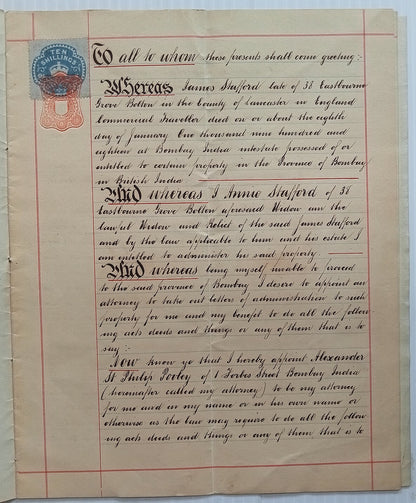 TEN
SHILLINGS
To all to whom these presents shall come greeting :-
Whereas James Stafford late of 38 Eastbourne
Grove Bolton in the County of Lancaster in England
Commercial Traveller died on or about the eighth
day of January One thousand nine hundred and
eighteen at Bombay India intestate possessed of or
entitled to certain property in the Province of Bombay
in British India
And whereas I Annie Stafford of 38
Eastbourne Grove Bolton aforesaid Widow am the
lawful Widow and Relict of the said James Stafford
and by the law applicable to him and his estate I
am entitled to administer his said property
And whereas being myself unable to proceed
to the said province of Bombay I desire to appoint an
attorney to take out letters of administration to such
property for me and my benefit to do all the follow
ing acts deeds and things or any of them that is to
say :-
Now know ye that I hereby appoint Alexander
St Philip Pooley of 1 Forbes Street Bombay India
(hereinafter called my attorney) to be my attorney
for me and in my name or in his own name or
otherwise as the law may require to do all the follow
ing acts deeds and things or any of them that is to